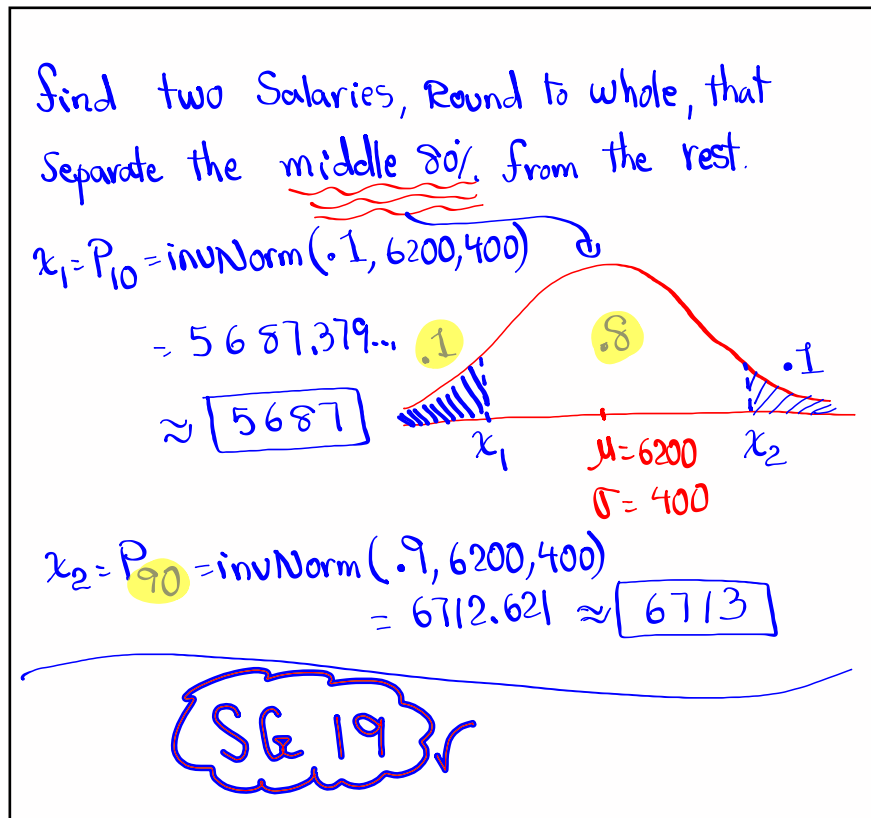 find two Salaries, Round to whole, that
Separate the middle 80% from the rest.
x₁=P₁₀=invNorm(.1, 6200,400)
= 5687.379...
.1
.8
.1
≈ 5687
x₁
μ=6200
x₂
σ= 400
x₂=P₉₀=invNorm(.9, 6200,400)
= 6712.621 ≈ 6713
SG 19 √